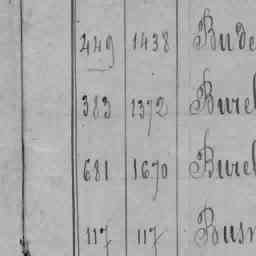 449 1438 Bude
383 1372 Burel
681 1670 Burel
117 117 Busn